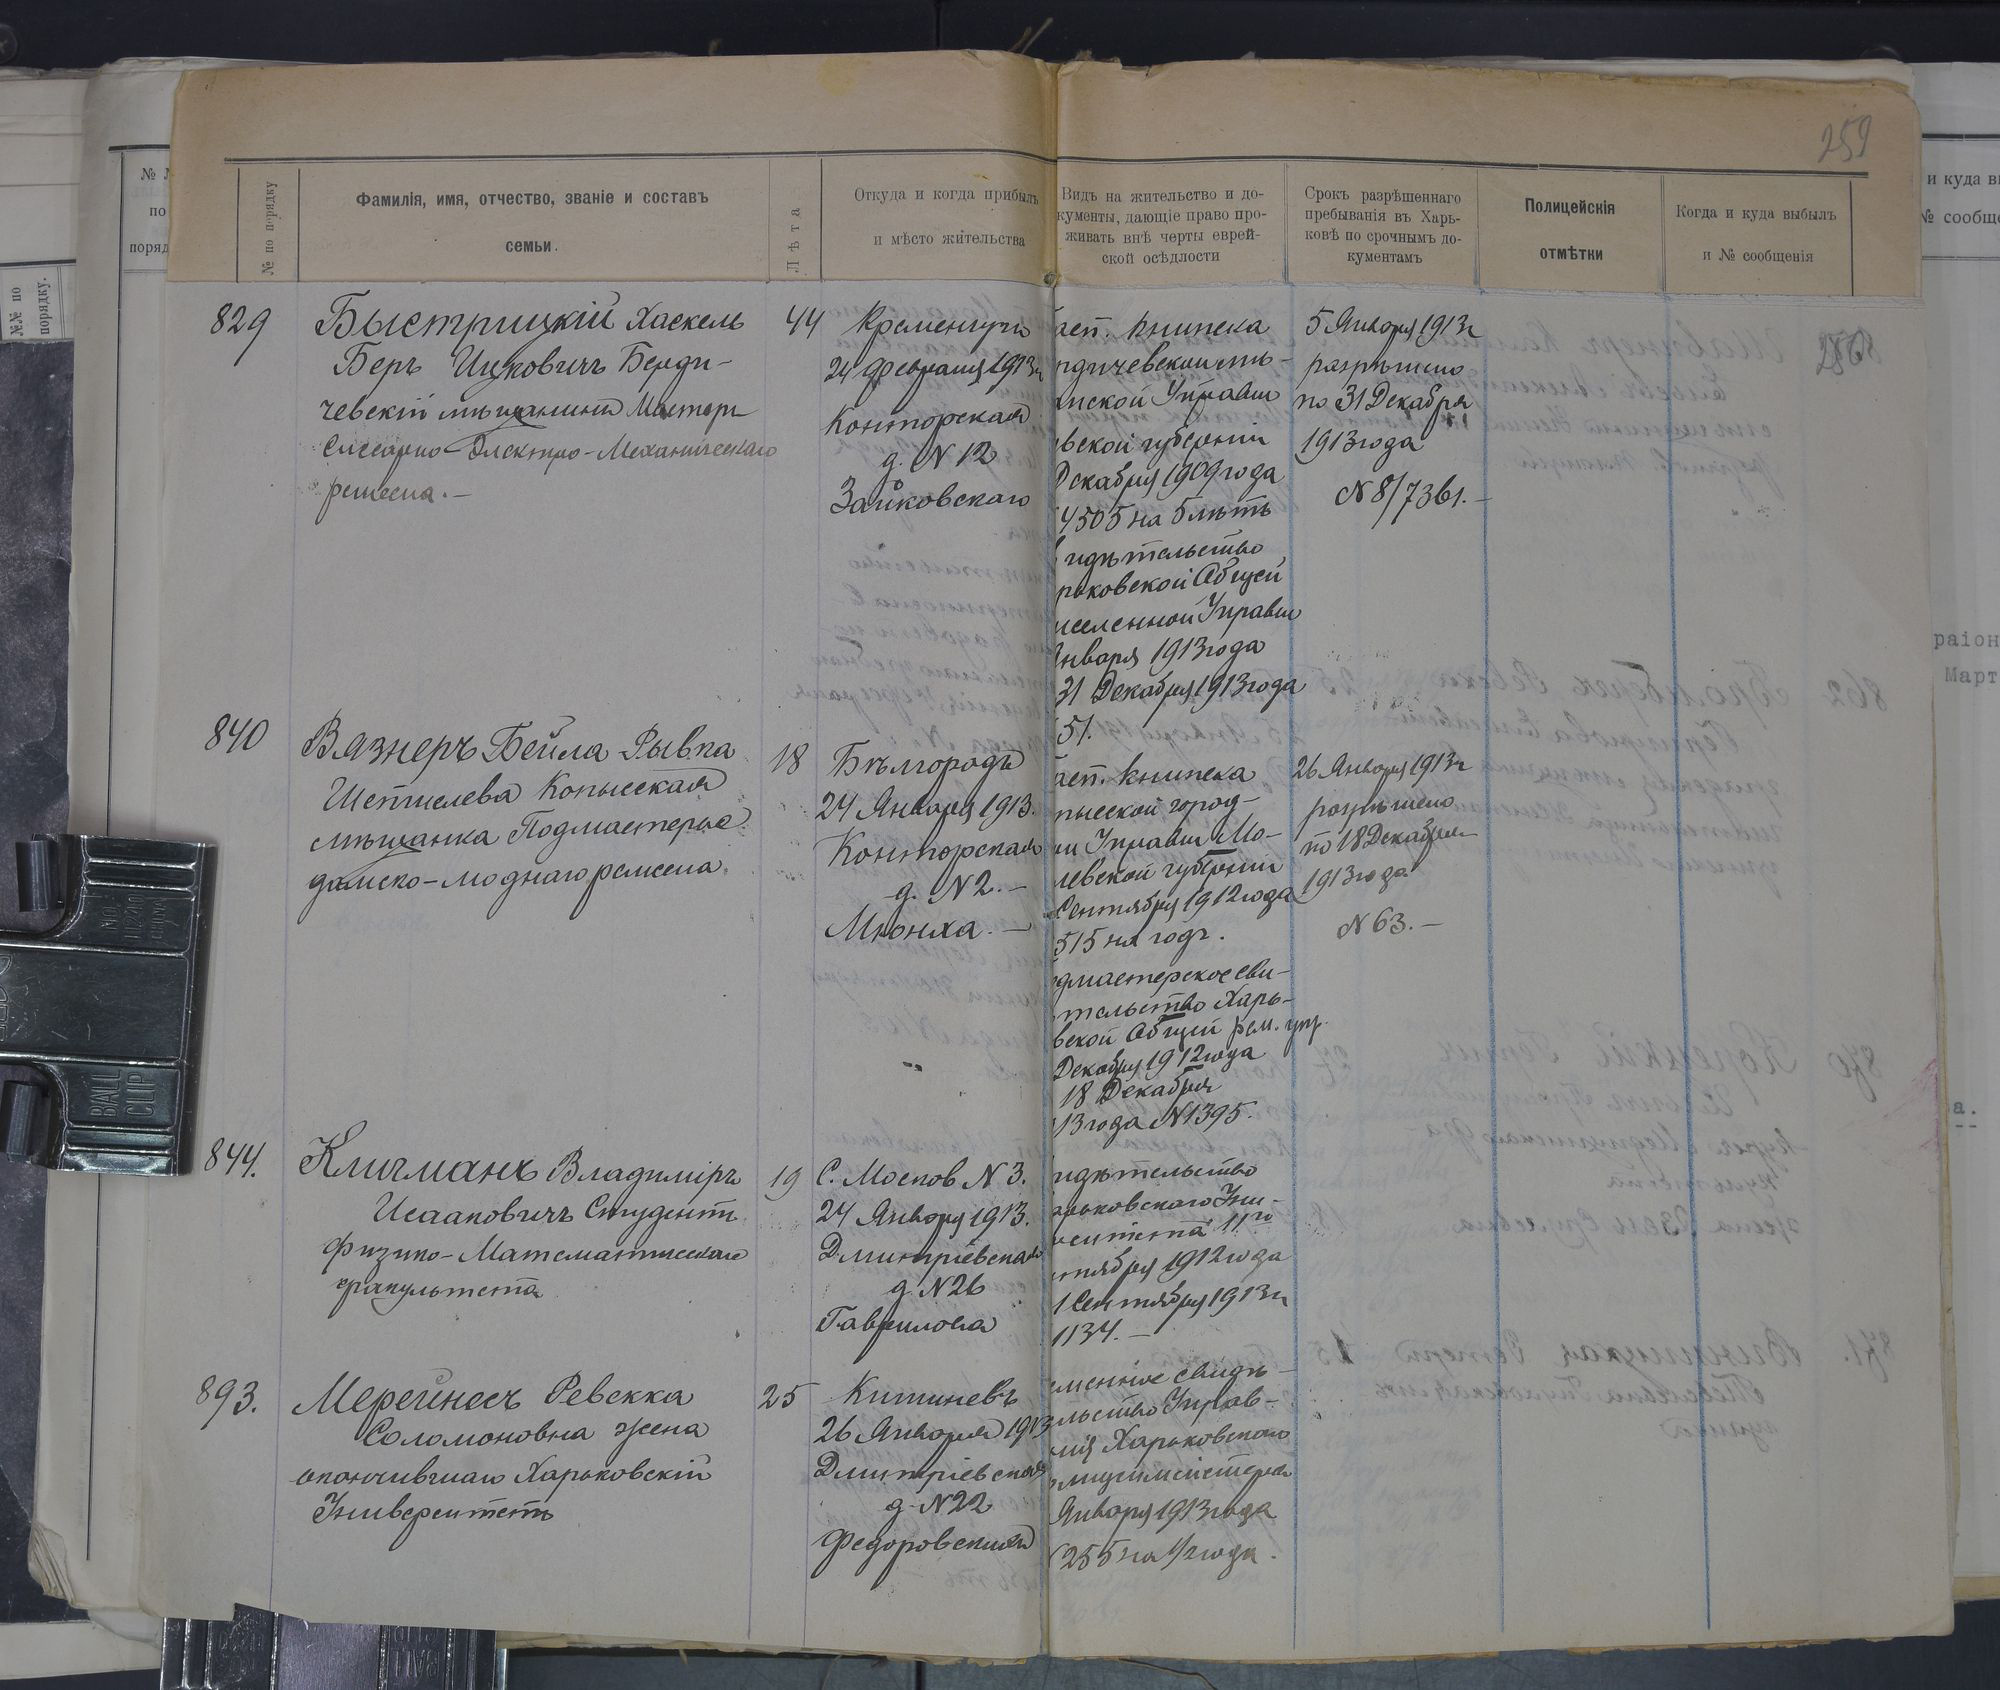 259
№ по порядку
Фамилія, имя, отчество, званіе и составъ
семьи.
Лѣта
Откуда и когда прибылъ
и мѣсто жительства
Видъ на жительство и до-
кументы, дающіе право про-
живать внѣ черты еврей-
ской осѣдлости
Срокъ разрѣшеннаго
пребыванія въ Харь-
ковѣ по срочнымъ до-
кументамъ
Полицейскія
отмѣтки
Когда и куда выбылъ
и № сообщенія
829
Быстрицкій Хаскель
Беръ Ицковичъ Берди-
чевскій мѣщанинъ Мастеръ
Слесарно-Электро-Механическаго
ремесла.-
44
Кременчугъ
24 Февраля 1913г
Конторская
д. N 12
Зайковскаго
асп. книжка
рдичевской мѣ-
анской Управы
вской губерніи
Декабря 1909 года
4505 на 5 лѣтъ
идѣтельство
рьковской Общей
меслянной Управы
Января 1913 года
31 Декабря 1913 года
51.
5 Января 1913г
разрѣшено
по 31 Декабря
1913 года
N 8/7361.-
840
Вязнеръ Бейла Рывка
Шепшелева Копысская
мѣщанка Подмастерье
дамско-моднаго ремесла.
18
Бѣлгородъ
24 Января 1913.
Конторская
д. N 2.-
Мюнха.-
асп. книжка
пысской город-
ой Управы Мо-
левской губерніи
Сентября 1912 года
515 на годъ.
дмастерское сви-
тельство Харь-
вской Общей рем. упр.
Декабря 1912 года
18 Декабря
13 года N 1395.
26 Января 1913г
разрѣшено
по 18 Декабря
1913 года
N 63.-
844.
Клигманъ Владиміръ
Исааковичъ Студентъ
Физико-Математическаго
факультета
19
С. Москов N 3.
24 Января 1913.
Дмитріевская
д. N 26
Гаврилова
идѣтельство
арьковскаго Уни-
рситета 11го
нтября 1912 года
1 Сентября 1913г
1134.-
893.
Мерейнесъ Ревекка
Соломоновна жена
окончившаго Харьковскій
Университетъ
25
Кишиневъ
26 Января 1913
Дмитріевская
д. N 22
Федоровской
еменное свидѣ-
ельство Управ-
нія Харьковскаго
олицеймейстера
Января 1913 года
N 255 на 1/2 года.